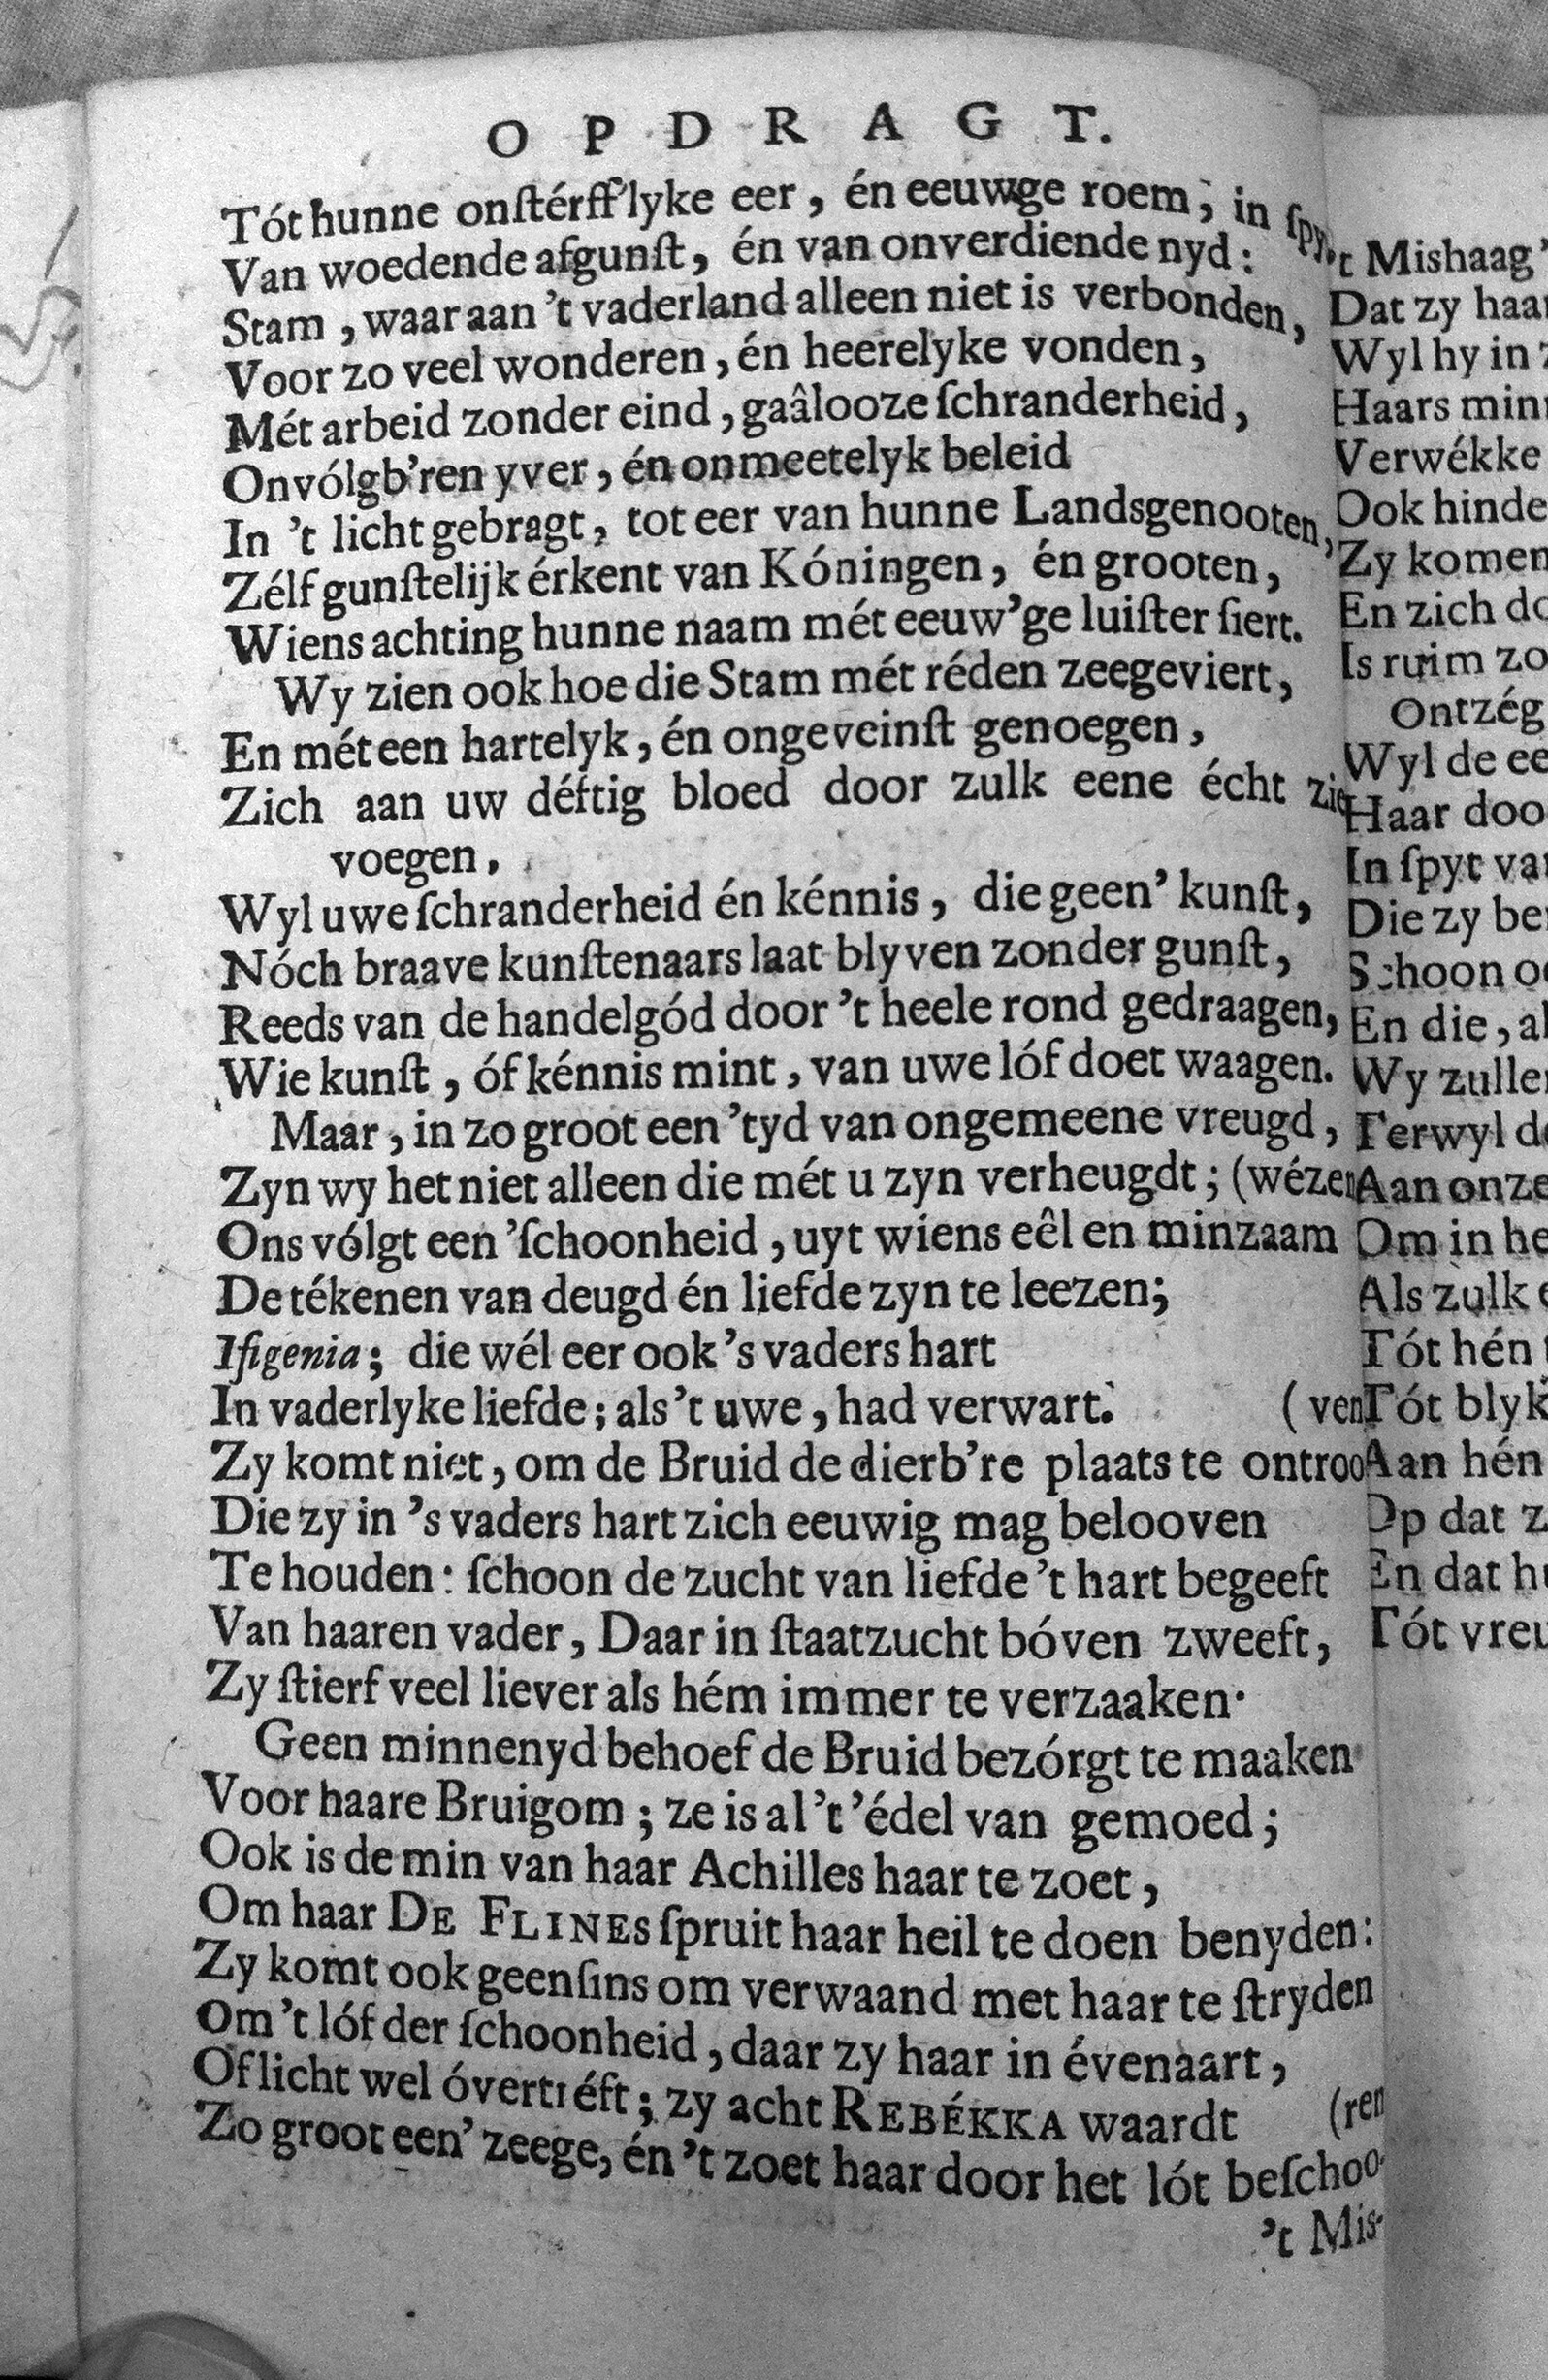 OPDRAGT.
Tót hunne onſtérff'lyke eer, én eeuwge roem, in ſpy
Van woedende afgunſt, én van onverdiende nyd:
Stam, waar aan 't vaderland alleen niet is verbonden,
Voor zo veel wonderen, én heerelyke vonden,
Mét arbeid zonder eind, gaâlooze ſchranderheid,
Onvólgb'ren yver, én onmeetelyk beleid
In 't licht gebragt, tot eer van hunne Landsgenooten,
Zélf gunſtelijk érkent van Kóningen, én grooten,
Wiens achting hunne naam mét eeuw'ge luiſter ſiert.
Wy zien ook hoe die Stam mét réden zeegeviert,
En mét een hartelyk, én ongeveinſt genoegen,
Zich aan uw déftig bloed door zulk eene écht zie
voegen,
Wyl uwe ſchranderheid én kénnis, die geen' kunſt,
Nóch braave kunſtenaars laat blyven zonder gunſt,
Reeds van de handelgód door 't heele rond gedraagen,
Wie kunſt, óf kénnis mint, van uwe lóf doet waagen.
Maar, in zo groot een 'tyd van ongemeene vreugd,
Zyn wy het niet alleen die mét u zyn verheugdt; (wézen
Ons vólgt een 'ſchoonheid, uyt wiens eêl en minzaam
De tékenen van deugd én liefde zyn te leezen;
Iſigenia; die wél eer ook 's vaders hart
In vaderlyke liefde; als 't uwe, had verwart. (ven
Zy komt niet, om de Bruid de dierb're plaats te ontroo
Die zy in 's vaders hart zich eeuwig mag belooven
Te houden: ſchoon de zucht van liefde 't hart begeeft
Van haaren vader, Daar in ſtaatzucht bóven zweeft,
Zy ſtierf veel liever als hém immer te verzaaken.
Geen minnenyd behoef de Bruid bezórgt te maaken
Voor haare Bruigom; ze is al 't 'édel van gemoed;
Ook is de min van haar Achilles haar te zoet,
Om haar DE FLINES ſpruit haar heil te doen benyden:
Zy komt ook geenſins om verwaand met haar te ſtryden
Om 't lóf der ſchoonheid, daar zy haar in évenaart,
Of licht wel óvertréft; zy acht REBÉKKA waardt (ren
Zo groot een' zeege, én 't zoet haar door het lót beſchoo-
't Mis-
't Mishaag'
Dat zy haar
Wyl hy in
Haars min
Verwékke
Ook hinde
Zy komen
En zich do
Is ruim zo
Ontzég
Wyl de ee
Haar doo
In ſpyt va
Die zy be
Schoon o
En die, al
Wy zulle
Terwyl d
Aan onze
Om in he
Als zulk
Tót hén
Tót blyk
Aan hén
Op dat z
En dat h
Tót vreu